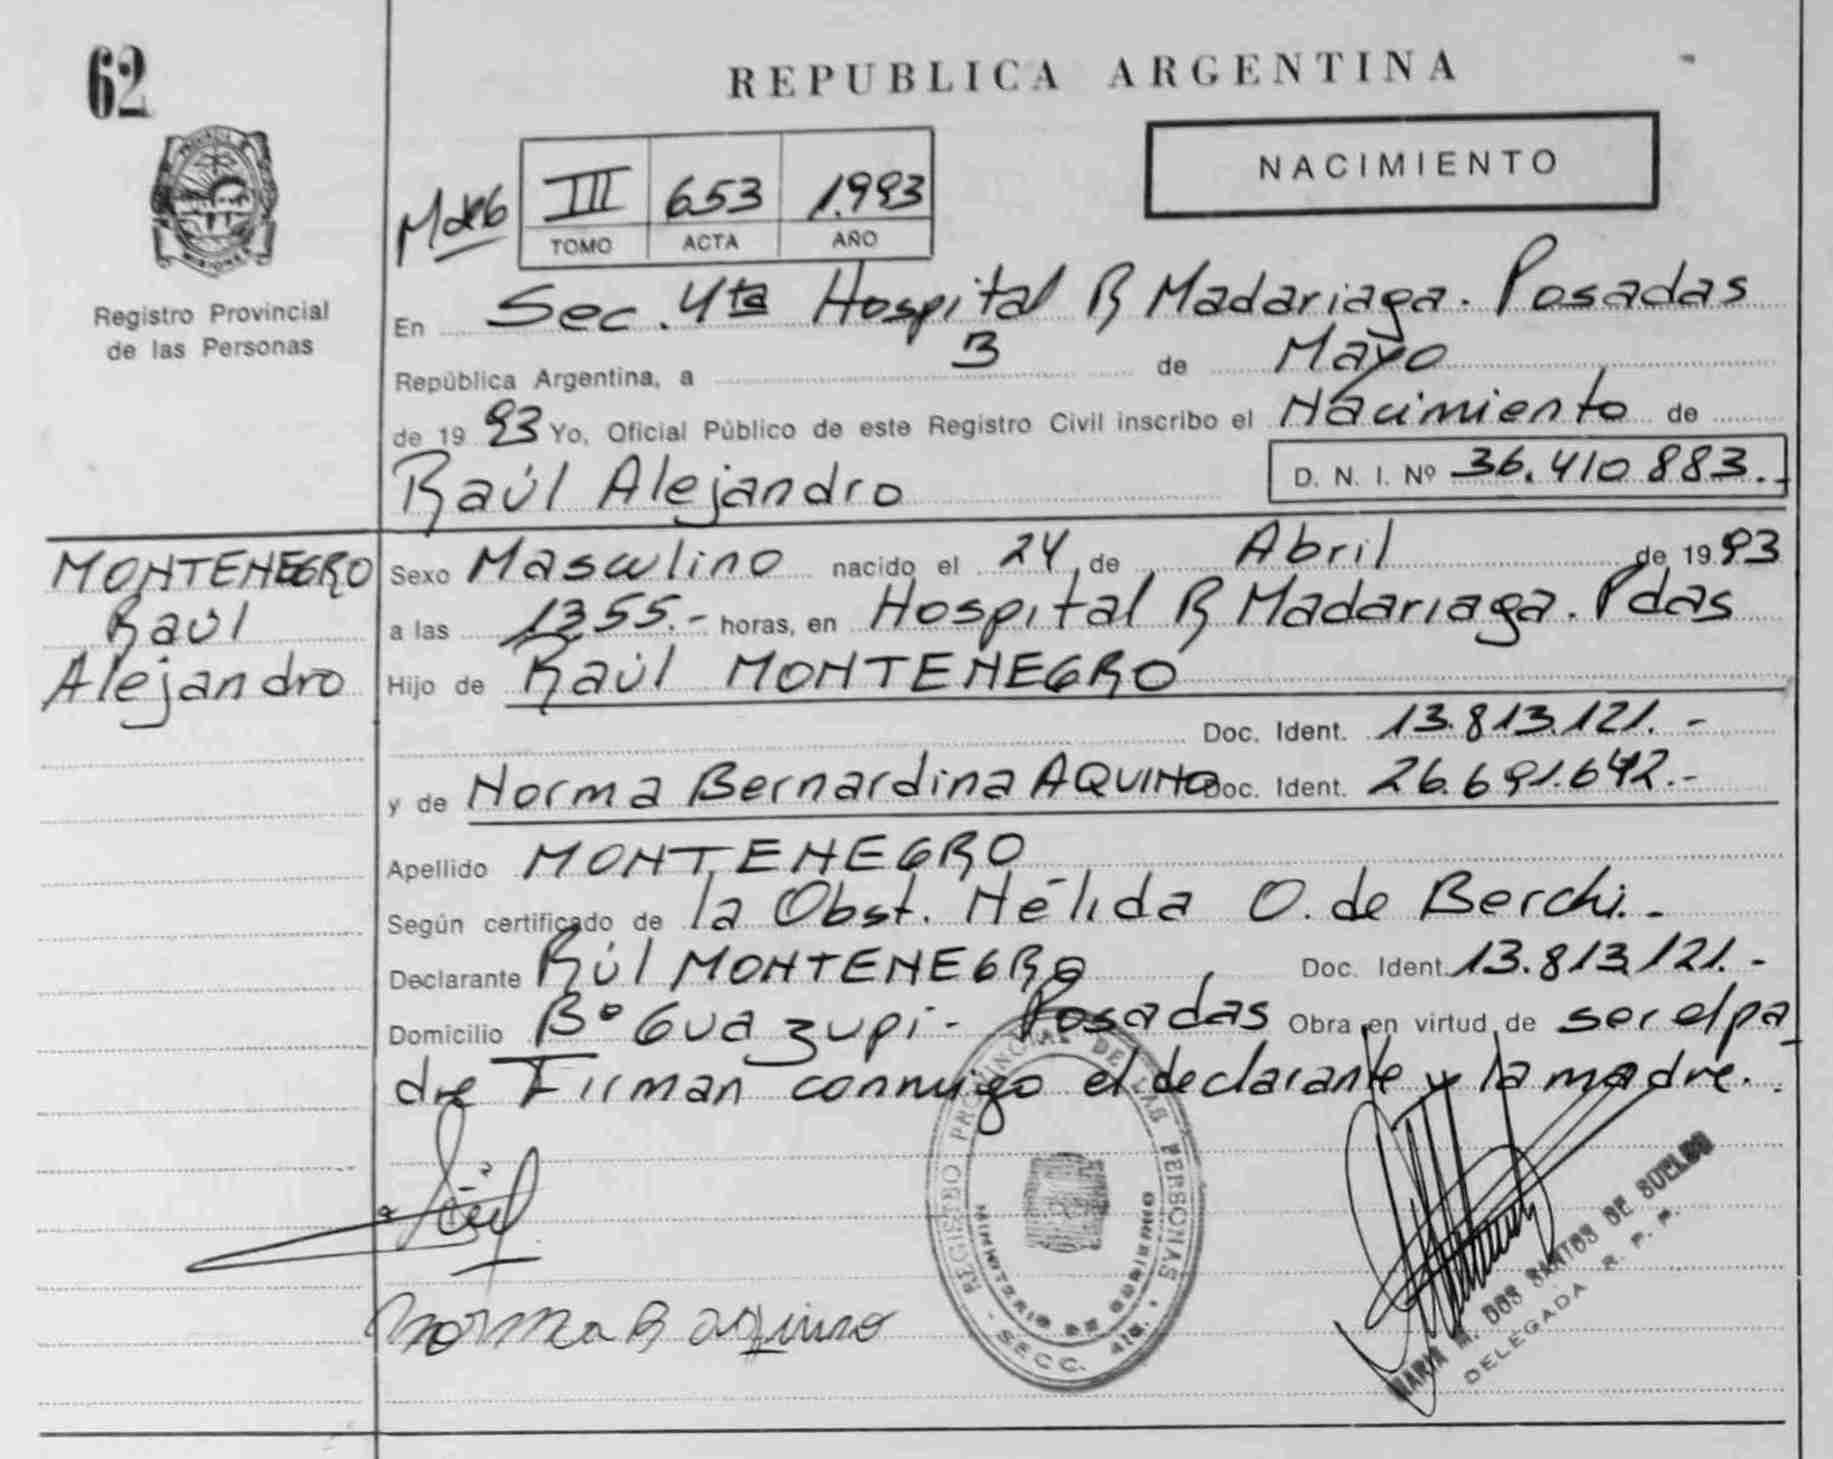 62
REPUBLICA ARGENTINA
NACIMIENTO
III 653 1.993
TOMO ACTA AÑO
PROVINCIA DE
MISIONES
Registro Provincial
de las Personas
En Sec. 4ta Hospital R Madariaga. Posadas
República Argentina, a 3 de Mayo
de 19 93 Yo, Oficial Público de este Registro Civil inscribo el Nacimiento de
Raúl Alejandro D. N. I. Nº 36.410.883.-
MONTENEGRO
Raúl
Alejandro
Sexo Masculino nacido el 24 de Abril de 19 93
a las 13,55.- horas, en Hospital R Madariaga. Pdas
Hijo de Raúl MONTENEGRO
Doc. Ident. 13.813.121.-
y de Norma Bernardina AQUINO Doc. Ident. 26.691.642.-
Apellido MONTENEGRO
Según certificado de la Obst. Nélida O. de Berchi.-
Declarante Rúl MONTENEGRO Doc. Ident. 13.813.121.-
Domicilio Bº Guazupi - Posadas Obra en virtud de ser el pa
dre Firman conmigo el declarante y la madre..
Norma B aquino
REGISTRO PROVINCIAL DE LAS PERSONAS
MINISTERIO DE GOBIERNO
- SECC. 4ta. -
MARIA M. DOS SANTOS DE SUELDO
DELEGADA R. P. P.